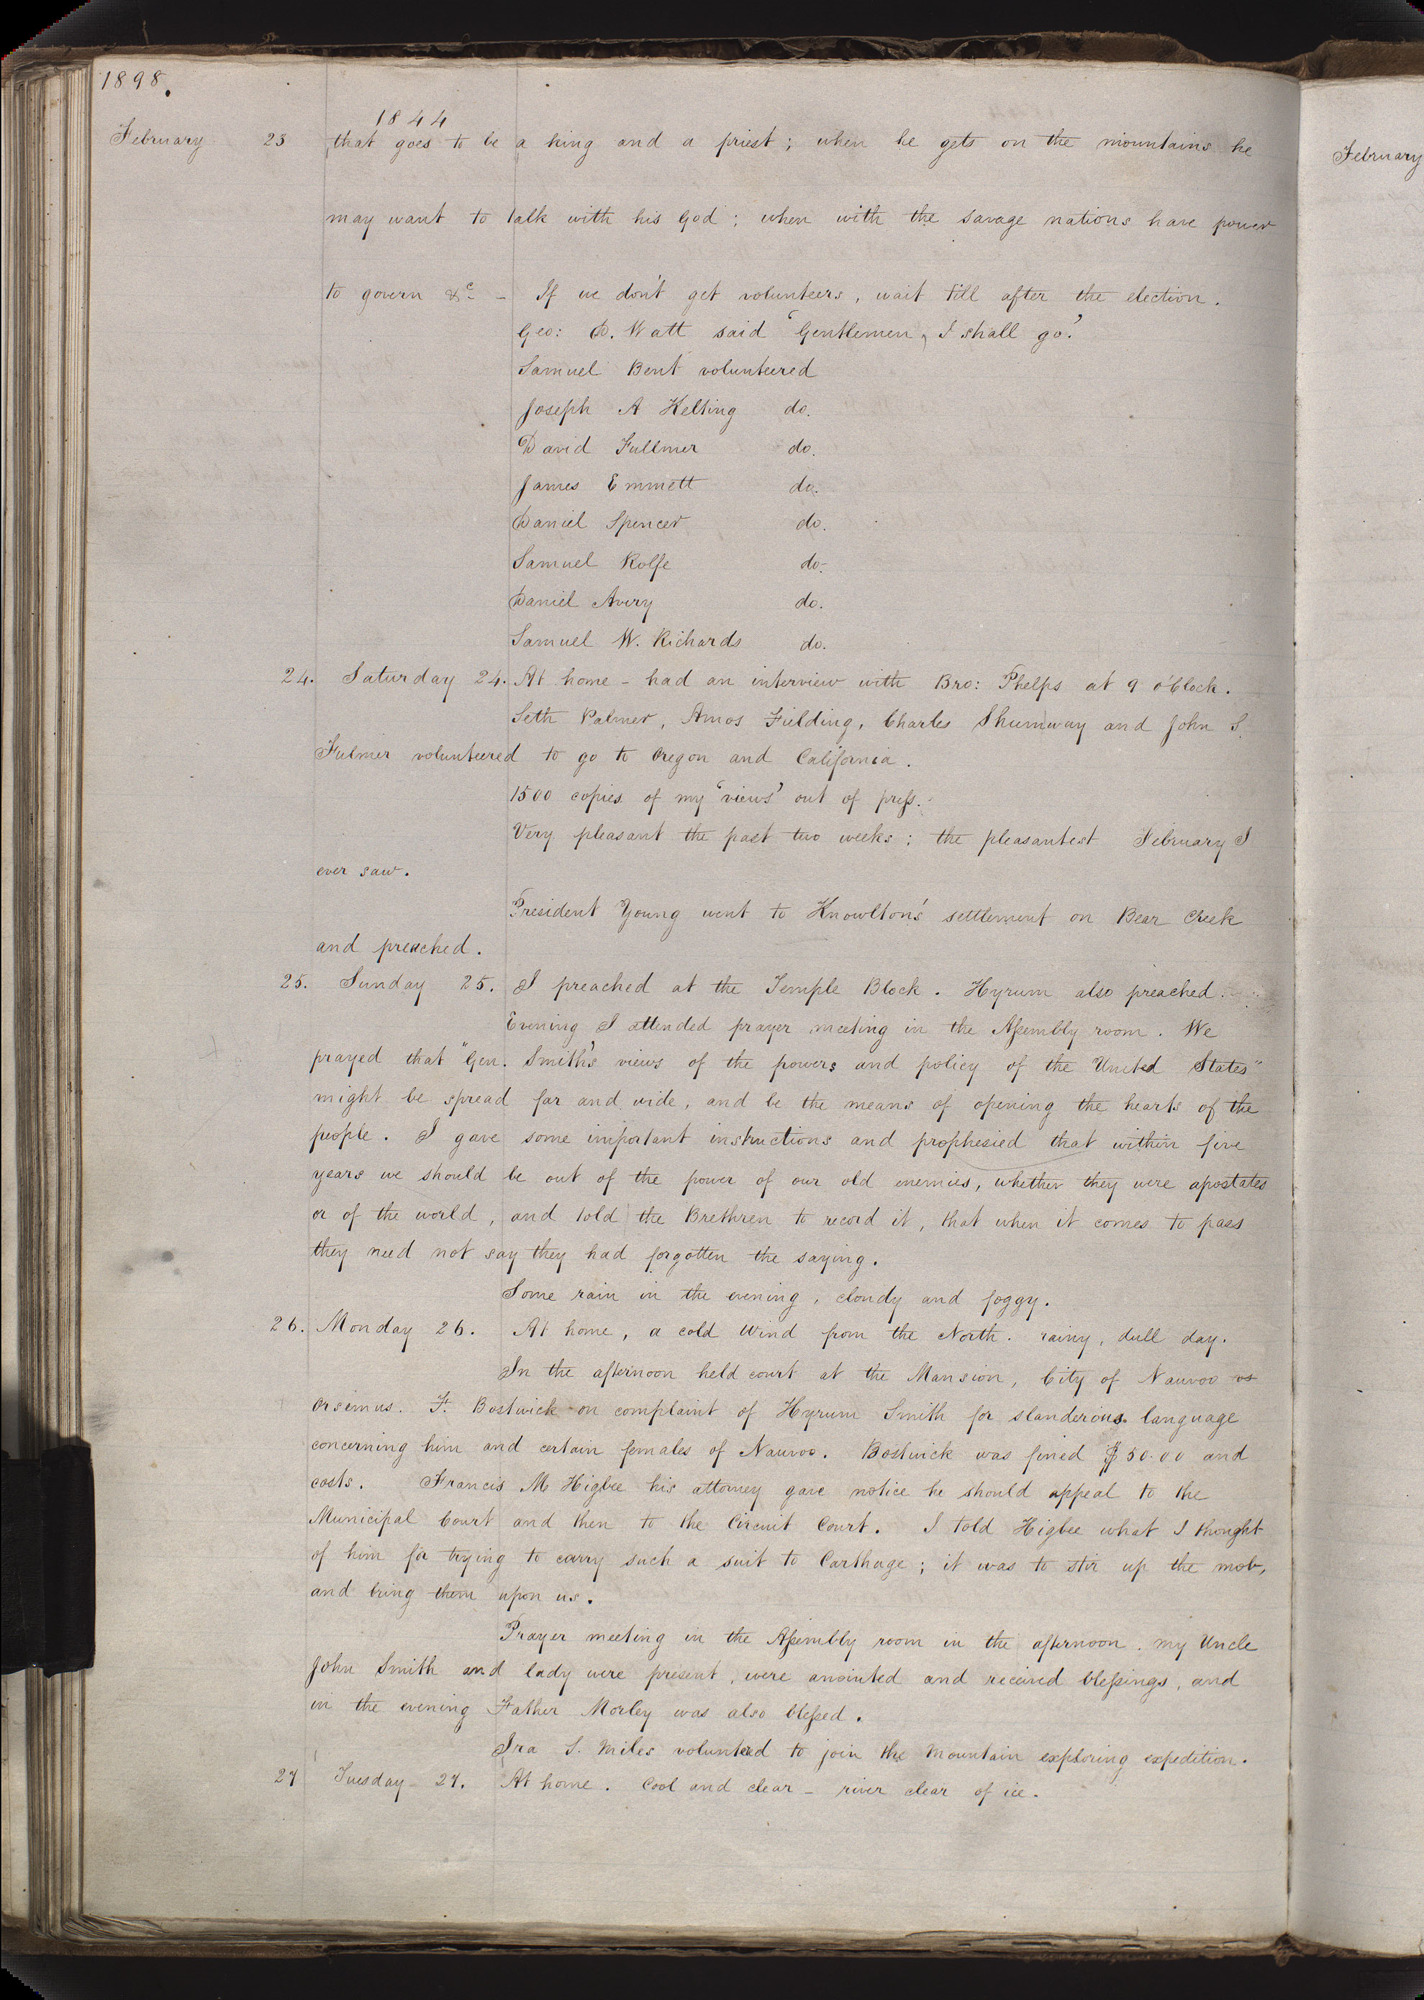 1898.
1844
February 23 that goes to be a king and a priest; when he gets on the mountains he
February
may want to talk with his God; when with the savage nations have power
to govern &c – If we don't get volunteers, wait till after the election.
Geo: D. Watt said 'Gentlemen, I shall go.'
Samuel Bent volunteered
Joseph A Kelting do.
David Fullmer do.
James Emmett do.
Daniel Spencer do.
Samuel Rolfe do.
Daniel Avery do.
Samuel W. Richards do.
24. Saturday 24. At home – had an interview with Bro: Phelps at 9 o'Clock.
Seth Palmer, Amos Fielding, Charles Shumway and John S.
Fulmer volunteered to go to Oregon and California.
1500 copies of my 'views' out of press.
Very pleasant the past two weeks; the pleasantest February I
ever saw.
President Young went to Knowlton's settlement on Bear Creek
and preached.
25. Sunday 25. I preached at the Temple Block. Hyrum also preached.
Evening I attended prayer meeting in the Assembly room. We
prayed that "Gen. Smith's views of the powers and policy of the United States"
might be spread far and wide, and be the means of opening the hearts of the
people. I gave some important instructions and prophesied that within five
years we should be out of the power of our old enemies, whether they were apostates
or of the world, and told the Brethren to record it, that when it comes to pass
they need not say they had forgotten the saying.
Some rain in the evening, cloudy and foggy.
26. Monday 26. At home, a cold wind from the North. rainy, dull day.
In the afternoon held court at the Mansion, City of Nauvoo vs
Orsimus. F. Bostwick on complaint of Hyrum Smith for slanderous language
concerning him and certain females of Nauvoo. Bostwick was fined $50.00 and
costs. Francis M Higbee his attorney gave notice he should appeal to the
Municipal Court and then to the Circuit Court. I told Higbee what I thought
of him for trying to carry such a suit to Carthage; it was to stir up the mob,
and bring them upon us.
Prayer meeting in the Assembly room in the afternoon. my Uncle
John Smith and lady were present, were anointed and received blessings, and
in the evening Father Morley was also blessed.
Ira S. Miles volunteed to join the Mountain exploring expedition.
27 Tuesday 27. At home. Cool and clear – river clear of ice.